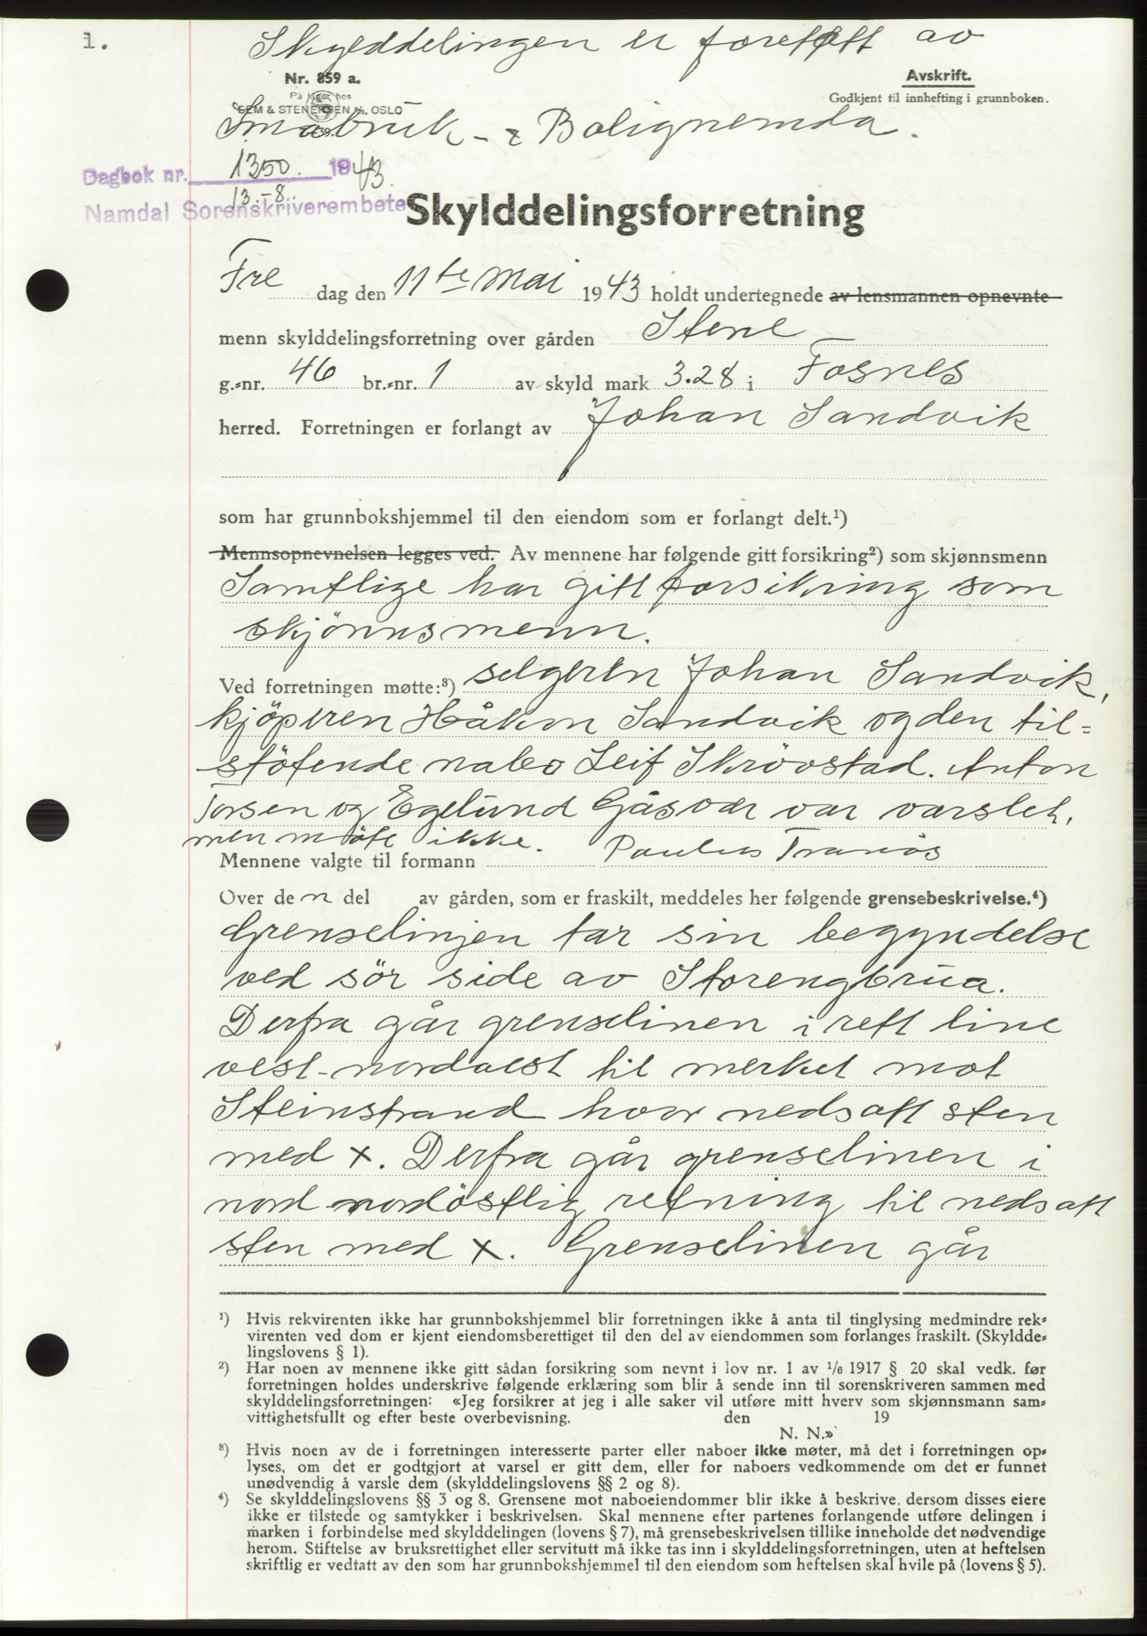 1.
Skylddelingen er foretatt av
Nr. 859 a.
På lager hos
SEM & STENERSEN A/S, OSLO
Avskrift.
Godkjent til innhefting i grunnboken.
Småbruk- & Bolignemda.
Dagbok nr. 1350. 1943.
13.-8.
Namdal Sorenskriverembete
Skylddelingsforretning
Fre dag den 11te mai 1943 holdt undertegnede av lensmannen opnevnte
menn skylddelingsforretning over gården Stene
g.-nr. 46 br.-nr. 1 av skyld mark 3.28 i Fosnes
herred. Forretningen er forlangt av Johan Sandvik
som har grunnbokshjemmel til den eiendom som er forlangt delt.¹)
Mennsopnevnelsen legges ved. Av mennene har følgende gitt forsikring²) som skjønnsmenn
Samtlige har gitt forsikring som
skjönnsmenn.
Ved forretningen møtte:³) selgeren Johan Sandvik,
kjöperen Håkon Sandvik og den til=
stötende nabo Leif Skrövstad. Anton
Torsen og Egelund Gåsvær var varslet,
men möte ikke.
Mennene valgte til formann Paulus Tranås
Over den del av gården, som er fraskilt, meddeles her følgende grensebeskrivelse.⁴)
Grenselinjen tar sin begyndelse
ved sör side av Storengbrua.
Derfra går grenselinen i rett line
vest-nordvest til merket mot
Steinstrand hvor nedsatt sten
med x. Derfra går grenselinen i
nord nordöstlig retning til nedsatt
sten med x. Grenselinen går
¹) Hvis rekvirenten ikke har grunnbokshjemmel blir forretningen ikke å anta til tinglysing medmindre rek-
virenten ved dom er kjent eiendomsberettiget til den del av eiendommen som forlanges fraskilt. (Skyldde-
lingslovens § 1).
²) Har noen av mennene ikke gitt sådan forsikring som nevnt i lov nr. 1 av ¹/₆ 1917 § 20 skal vedk. før
forretningen holdes underskrive følgende erklæring som blir å sende inn til sorenskriveren sammen med
skylddelingsforretningen: «Jeg forsikrer at jeg i alle saker vil utføre mitt hverv som skjønnsmann sam-
vittighetsfullt og efter beste overbevisning. den 19
N. N.»
³) Hvis noen av de i forretningen interesserte parter eller naboer ikke møter, må det i forretningen op-
lyses, om det er godtgjort at varsel er gitt dem, eller for naboers vedkommende om det er funnet
unødvendig å varsle dem (skylddelingslovens §§ 2 og 8).
⁴) Se skylddelingslovens §§ 3 og 8. Grensene mot naboeiendommer blir ikke å beskrive, dersom disses eiere
ikke er tilstede og samtykker i beskrivelsen. Skal mennene efter partenes forlangende utføre delingen i
marken i forbindelse med skylddelingen (lovens § 7), må grensebeskrivelsen tillike inneholde det nødvendige
herom. Stiftelse av bruksrettighet eller servitutt må ikke tas inn i skylddelingsforretningen, uten at heftelsen
skriftlig er vedtatt av den som har grunnbokshjemmel til den eiendom som heftelsen skal hvile på (lovens § 5).